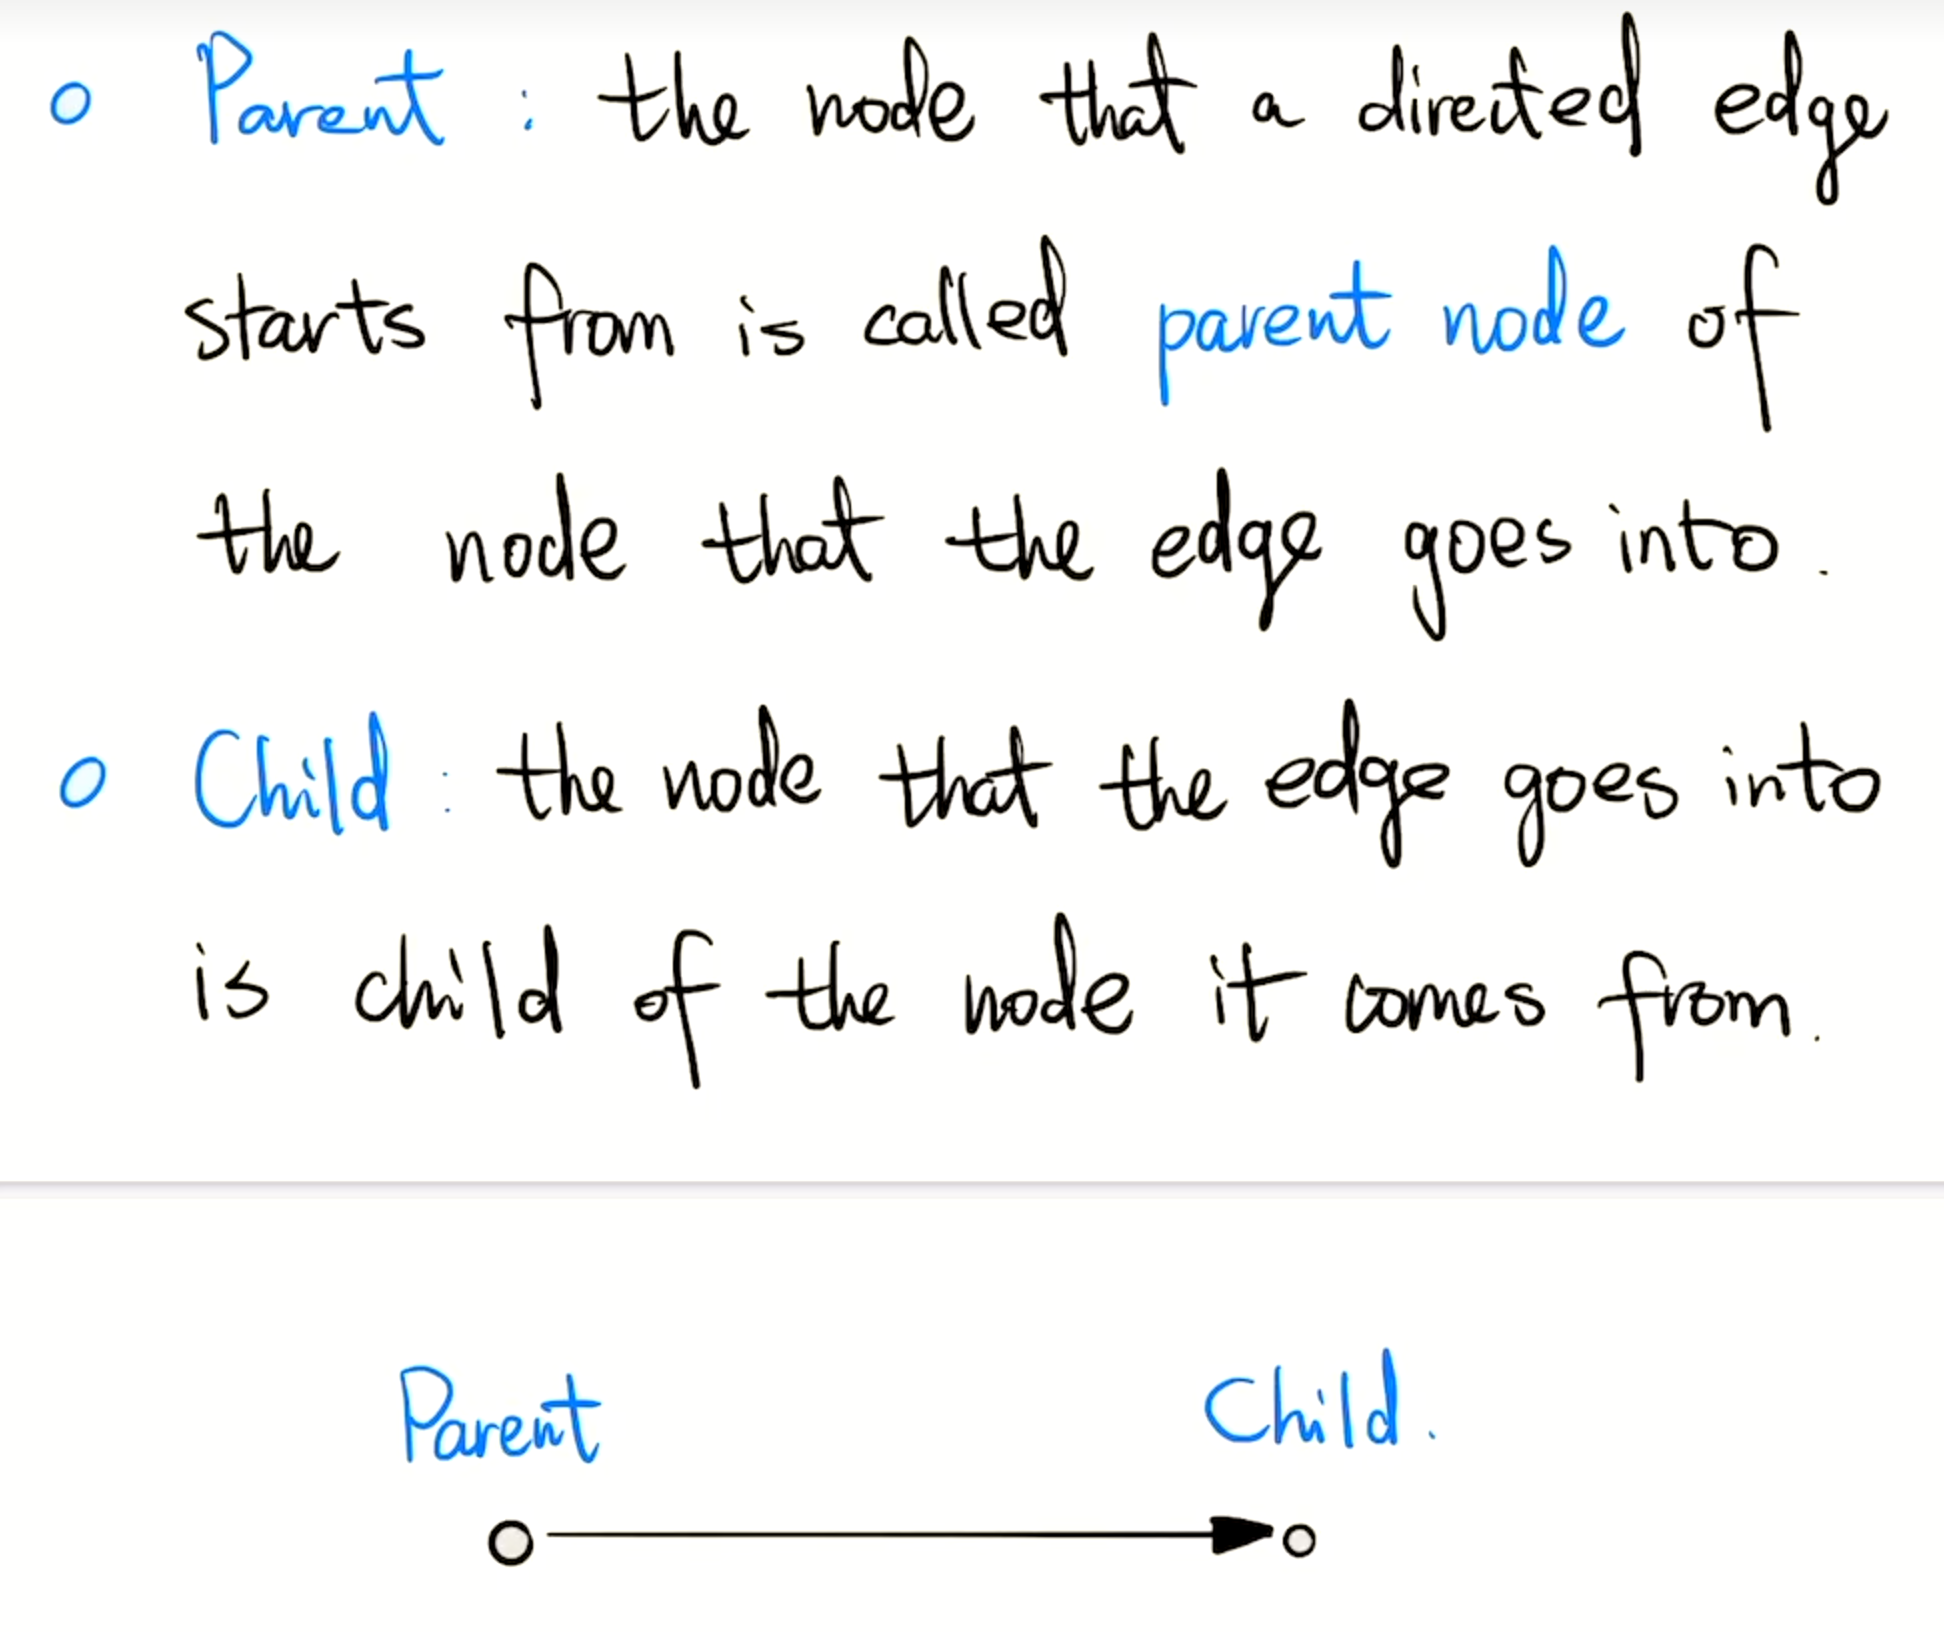 o Parent : the node that a directed edge
starts from is called parent node of
the node that the edge goes into.
o Child : the node that the edge goes into
is child of the node it comes from.
Parent
Child.